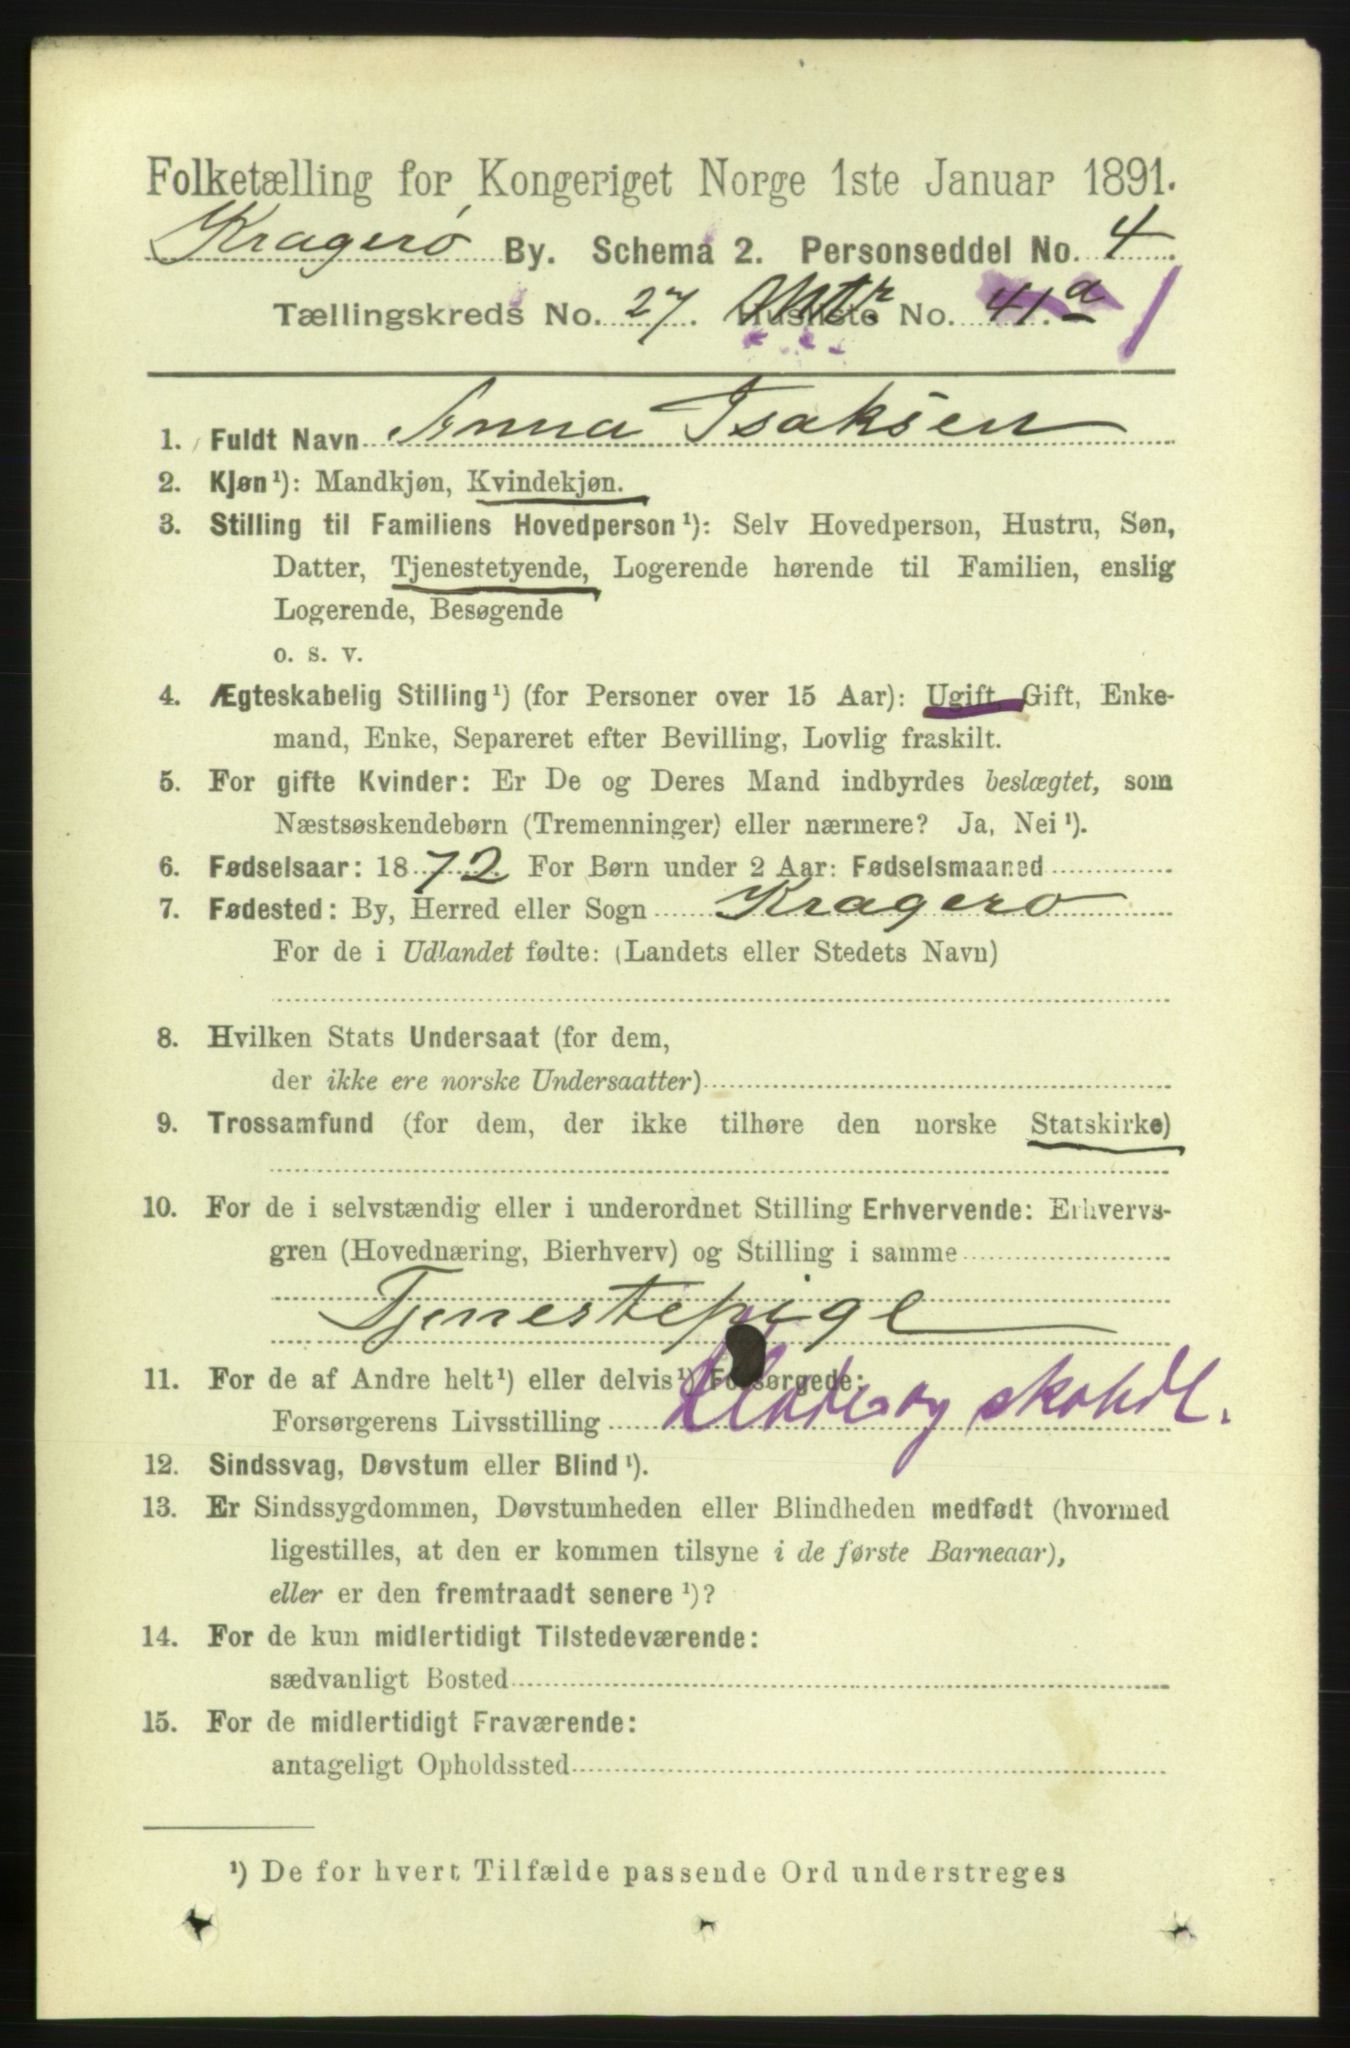 Folketælling for Kongeriget Norge 1ste Januar 1891.
Kragerø By. Schema 2. Personseddel No. 4.
Tællingskreds No. 27. Husliste No. 41a
1. Fuldt Navn Anna Isaksen
2. Kjøn¹): Mandkjøn, Kvindekjøn.
3. Stilling til Familiens Hovedperson¹): Selv Hovedperson, Hustru, Søn,
Datter, Tjenestetyende, Logerende hørende til Familien, enslig
Logerende, Besøgende
o. s. v.
4. Ægteskabelig Stilling¹) (for Personer over 15 Aar): Ugift, Gift, Enke-
mand, Enke, Separeret efter Bevilling, Lovlig fraskilt.
5. For gifte Kvinder: Er De og Deres Mand indbyrdes beslægtet, som
Næstsøskendebørn (Tremenninger) eller nærmere? Ja, Nei¹).
6. Fødselsaar: 1872. For Børn under 2 Aar: Fødselsmaaned
7. Fødested: By, Herred eller Sogn Kragerø
For de i Udlandet fødte: (Landets eller Stedets Navn)
8. Hvilken Stats Undersaat (for dem,
der ikke ere norske Undersaatter)
9. Trossamfund (for dem, der ikke tilhøre den norske Statskirke)
10. For de i selvstændig eller i underordnet Stilling Erhvervende: Erhvervs-
gren (Hovednæring, Bierhverv) og Stilling i samme
Tjenestepige
11. For de af Andre helt¹) eller delvis¹) Forsørgede:
Forsørgerens Livsstilling
12. Sindssvag, Døvstum eller Blind¹).
13. Er Sindssygdommen, Døvstumheden eller Blindheden medfødt (hvormed
ligestilles, at den er kommen tilsyne i de første Barneaar),
eller er den fremtraadt senere¹)?
14. For de kun midlertidigt Tilstedeværende:
sædvanligt Bosted
15. For de midlertidigt Fraværende:
antageligt Opholdssted
¹) De for hvert Tilfælde passende Ord understreges